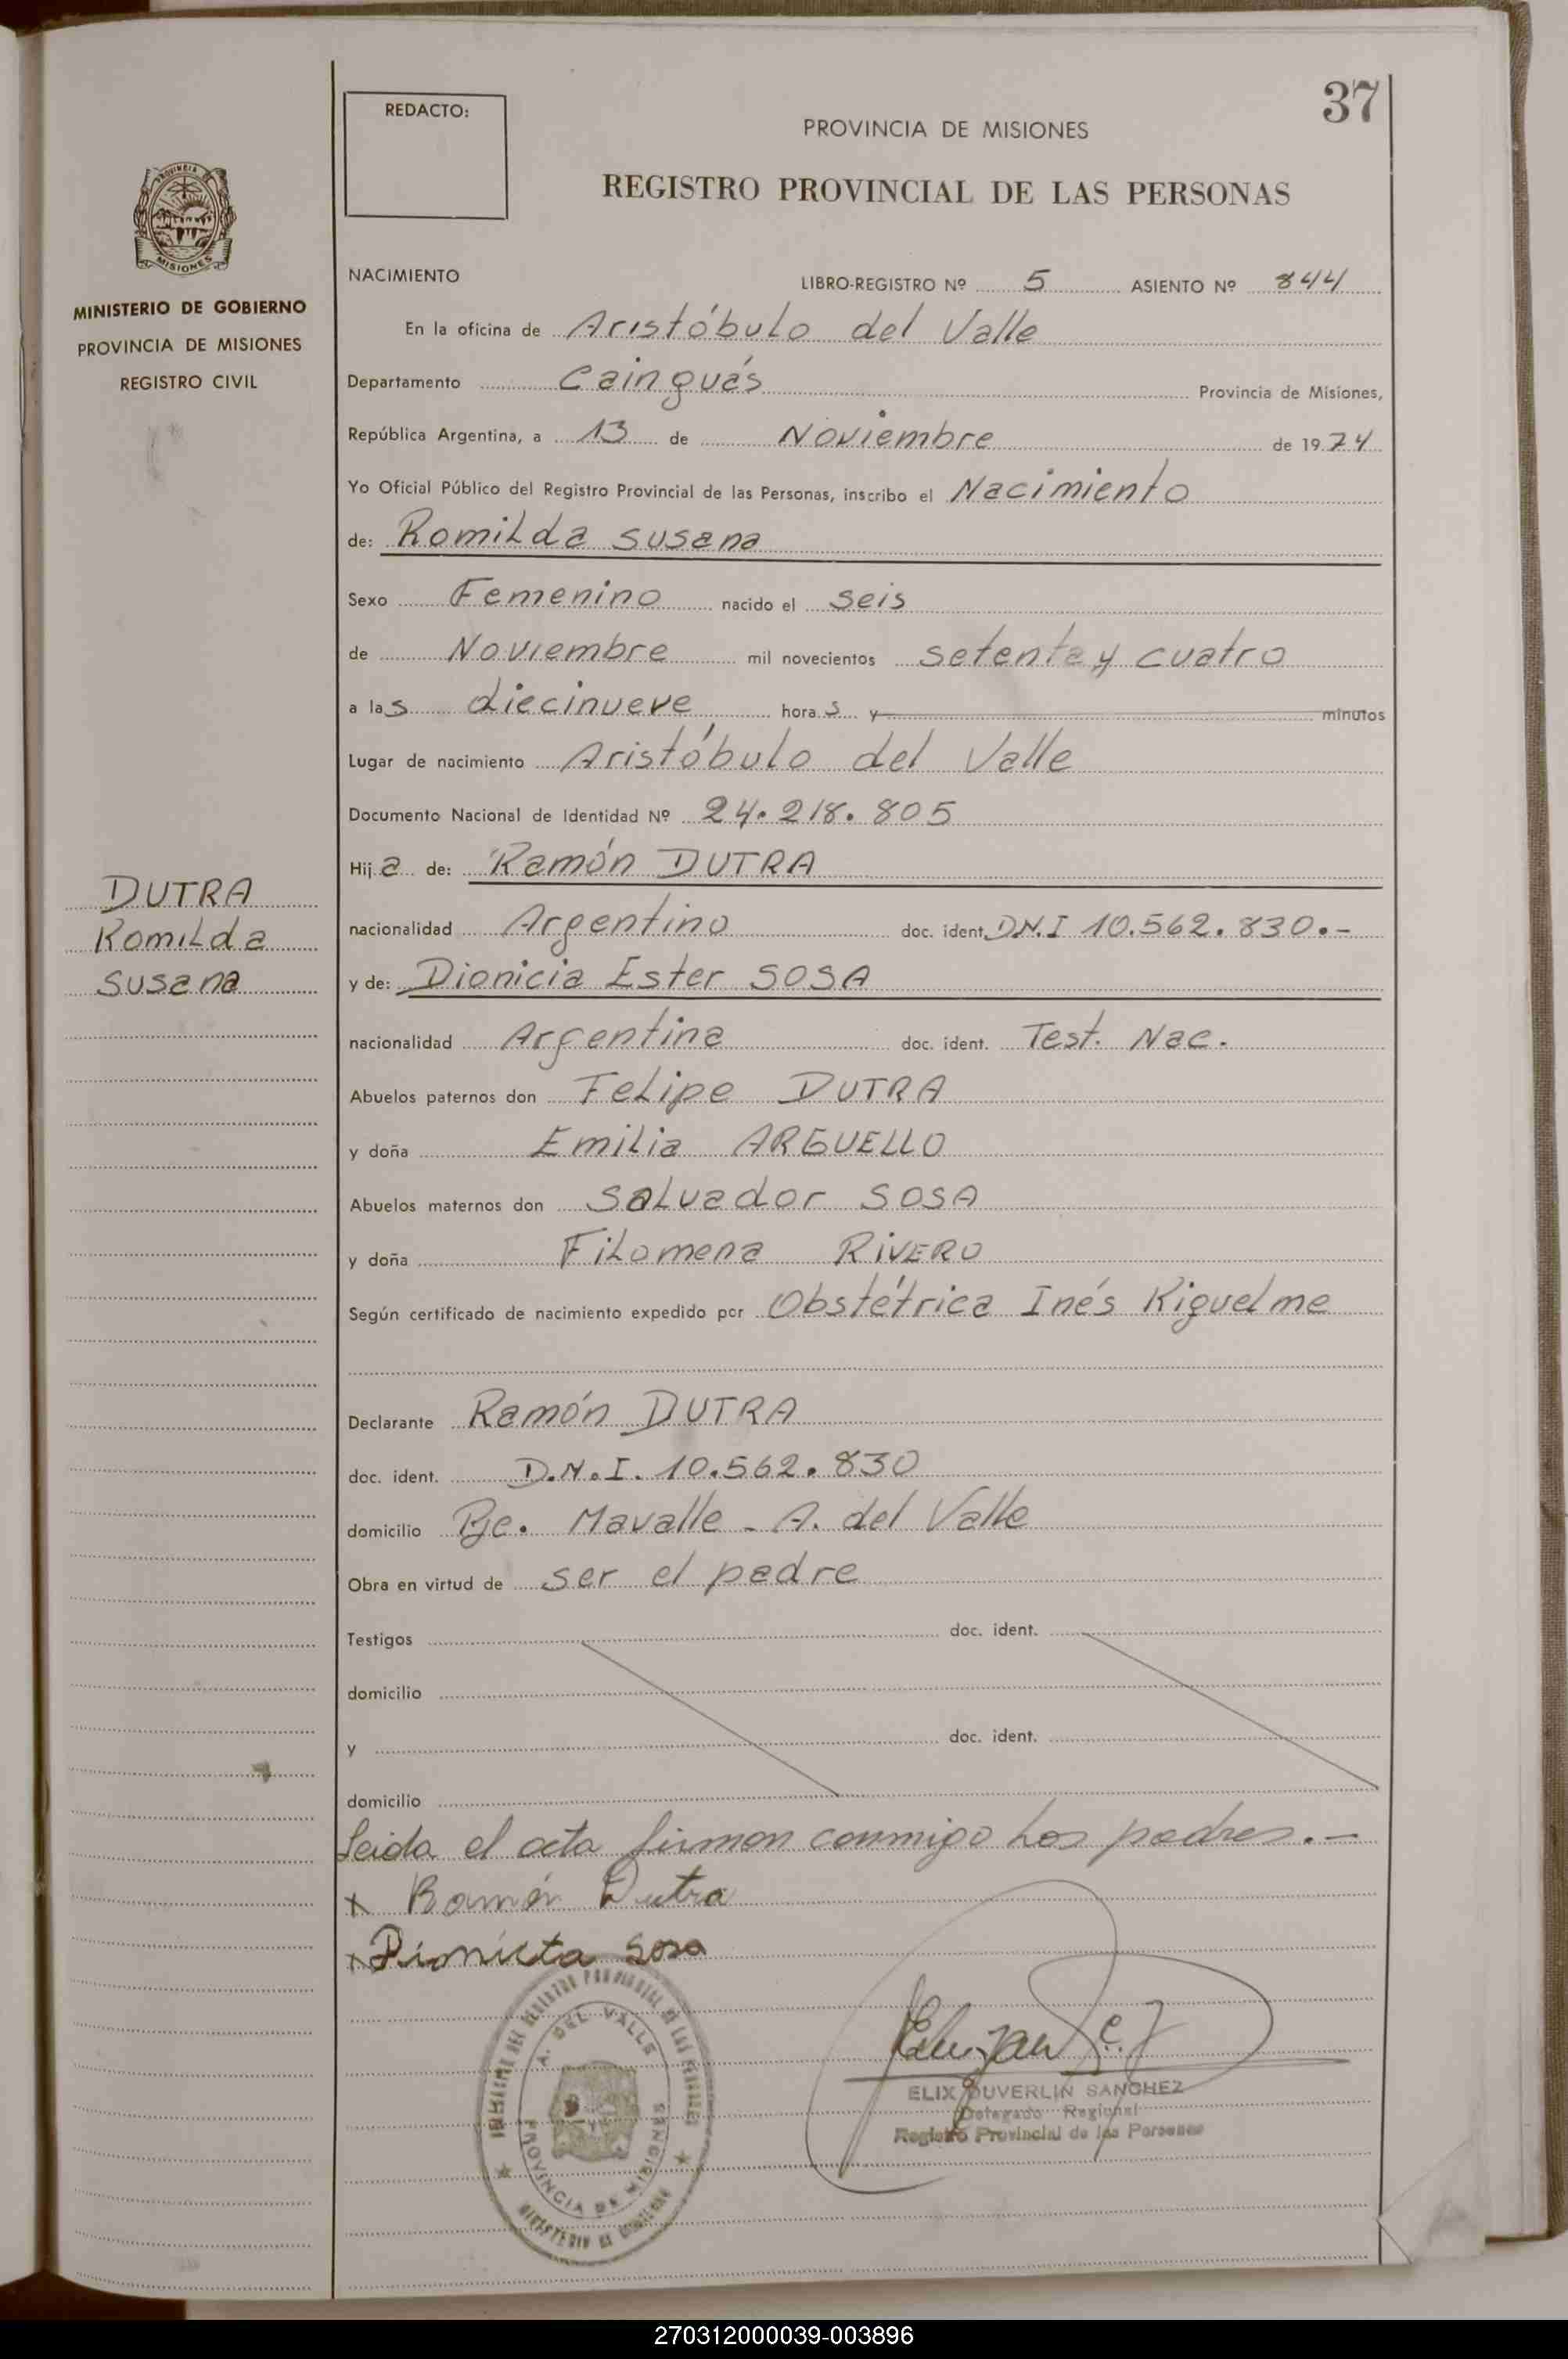 37
REDACTO:
PROVINCIA DE MISIONES
REGISTRO PROVINCIAL DE LAS PERSONAS
MISIONES
MINISTERIO DE GOBIERNO
PROVINCIA DE MISIONES
REGISTRO CIVIL
NACIMIENTO
LIBRO-REGISTRO Nº 5 ASIENTO Nº 844
En la oficina de Aristóbulo del Valle
Departamento Cainguás Provincia de Misiones,
República Argentina, a 13 de Noviembre de 1974
Yo Oficial Público del Registro Provincial de las Personas, inscribo el Nacimiento
de: Romilda Susana
Sexo Femenino nacido el seis
de Noviembre mil novecientos setenta y cuatro
a las diecinueve horas y minutos
Lugar de nacimiento Aristóbulo del Valle
Documento Nacional de Identidad Nº 24.218.805
Hija de: Ramón DUTRA
nacionalidad Argentino doc. ident. D.N.I 10.562.830.-
y de: Dionicia Ester SOSA
nacionalidad Argentina doc. ident. Test. Nac.
Abuelos paternos don Felipe DUTRA
y doña Emilia ARGUELLO
Abuelos maternos don Salvador SOSA
y doña Filomena RIVERO
Según certificado de nacimiento expedido por Obstétrica Inés Riguelme
Declarante Ramón DUTRA
doc. ident. D.N.I. 10.562.830
domicilio Pje. Mavalle - A. del Valle
Obra en virtud de ser el padre
Testigos doc. ident.
domicilio
y doc. ident.
domicilio
Leida el acta firman conmigo los padres.-
x Ramón Dutra
x Dionicia Sosa
DUTRA
Romilda
Susana
A. DEL VALLE
PROVINCIA DE MISIONES
ELIX DUVERLIN SANCHEZ
Delegado Regional
Registro Provincial de las Personas
270312000039-003896